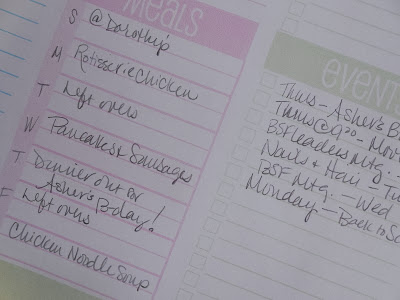 MEALS
S @ Dorothy's
M Rotisserie Chicken
T Left overs
W Pancakes & Sausages
T Dinner out for
Asher's B-day!
F Left overs
Chicken Noodle Soup
EVENTS
Thurs - Asher's B
Thurs @ 9³⁰ - Mov
BSF Leaders Mtg. -
Nails & Hair - Tu
BSF Mtg. - Wed
Monday - Back to Sc